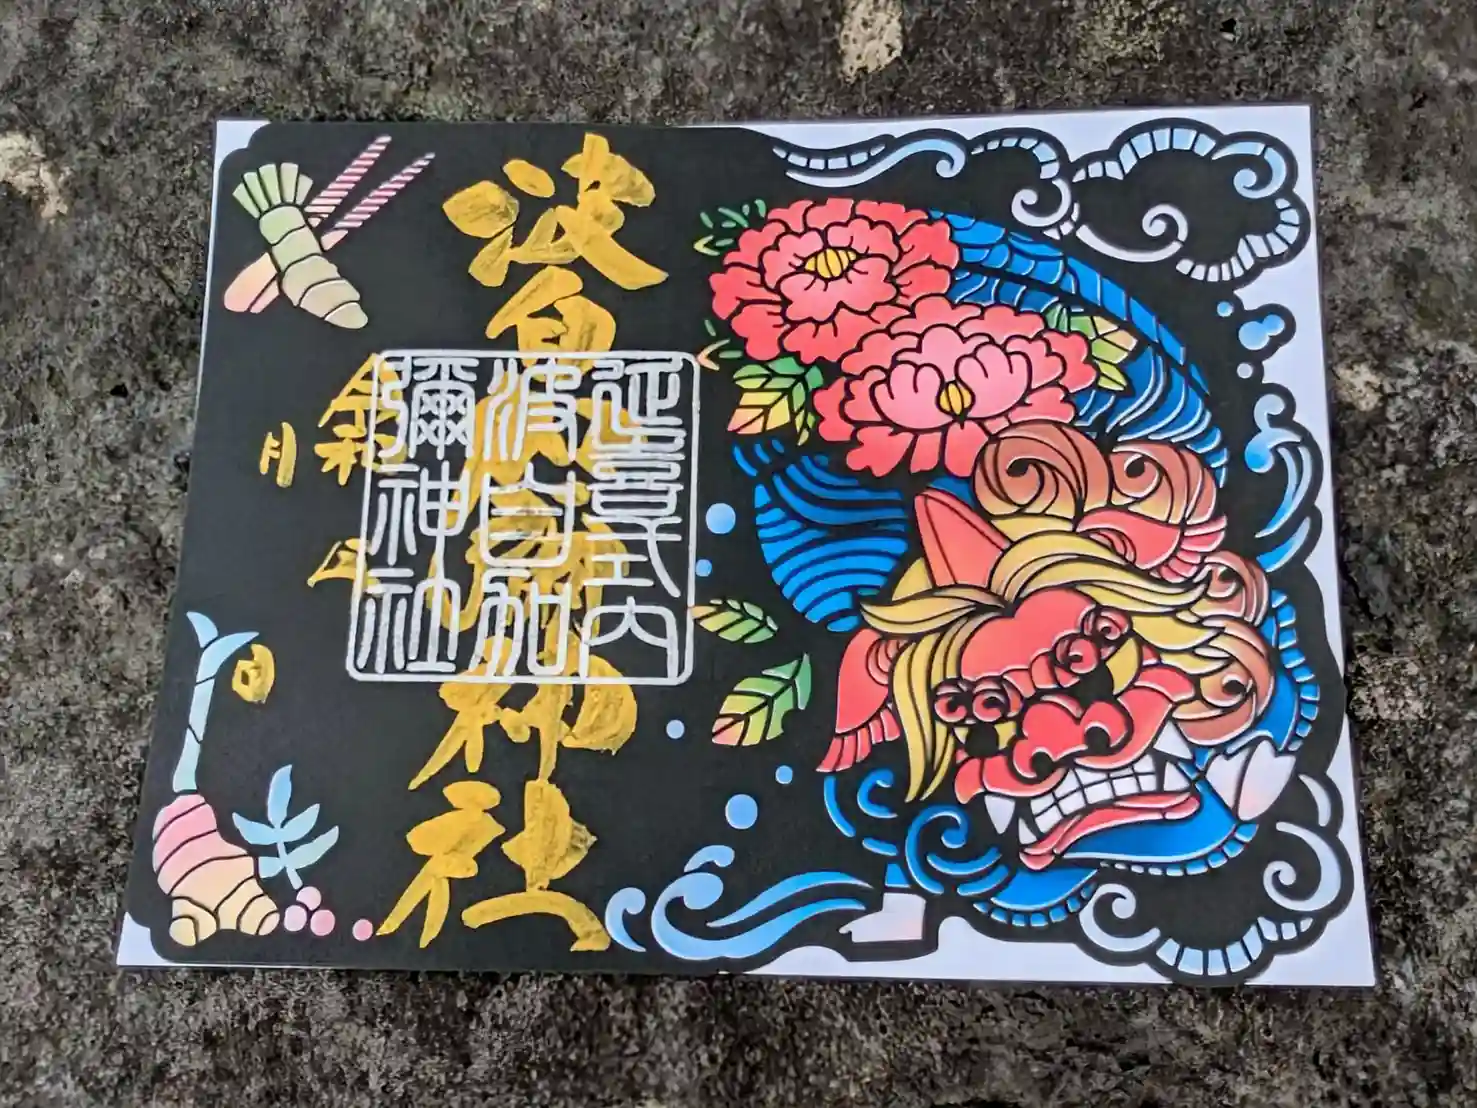 波自加彌神社
延喜式内
波自加
彌神社
令和 年
月 日